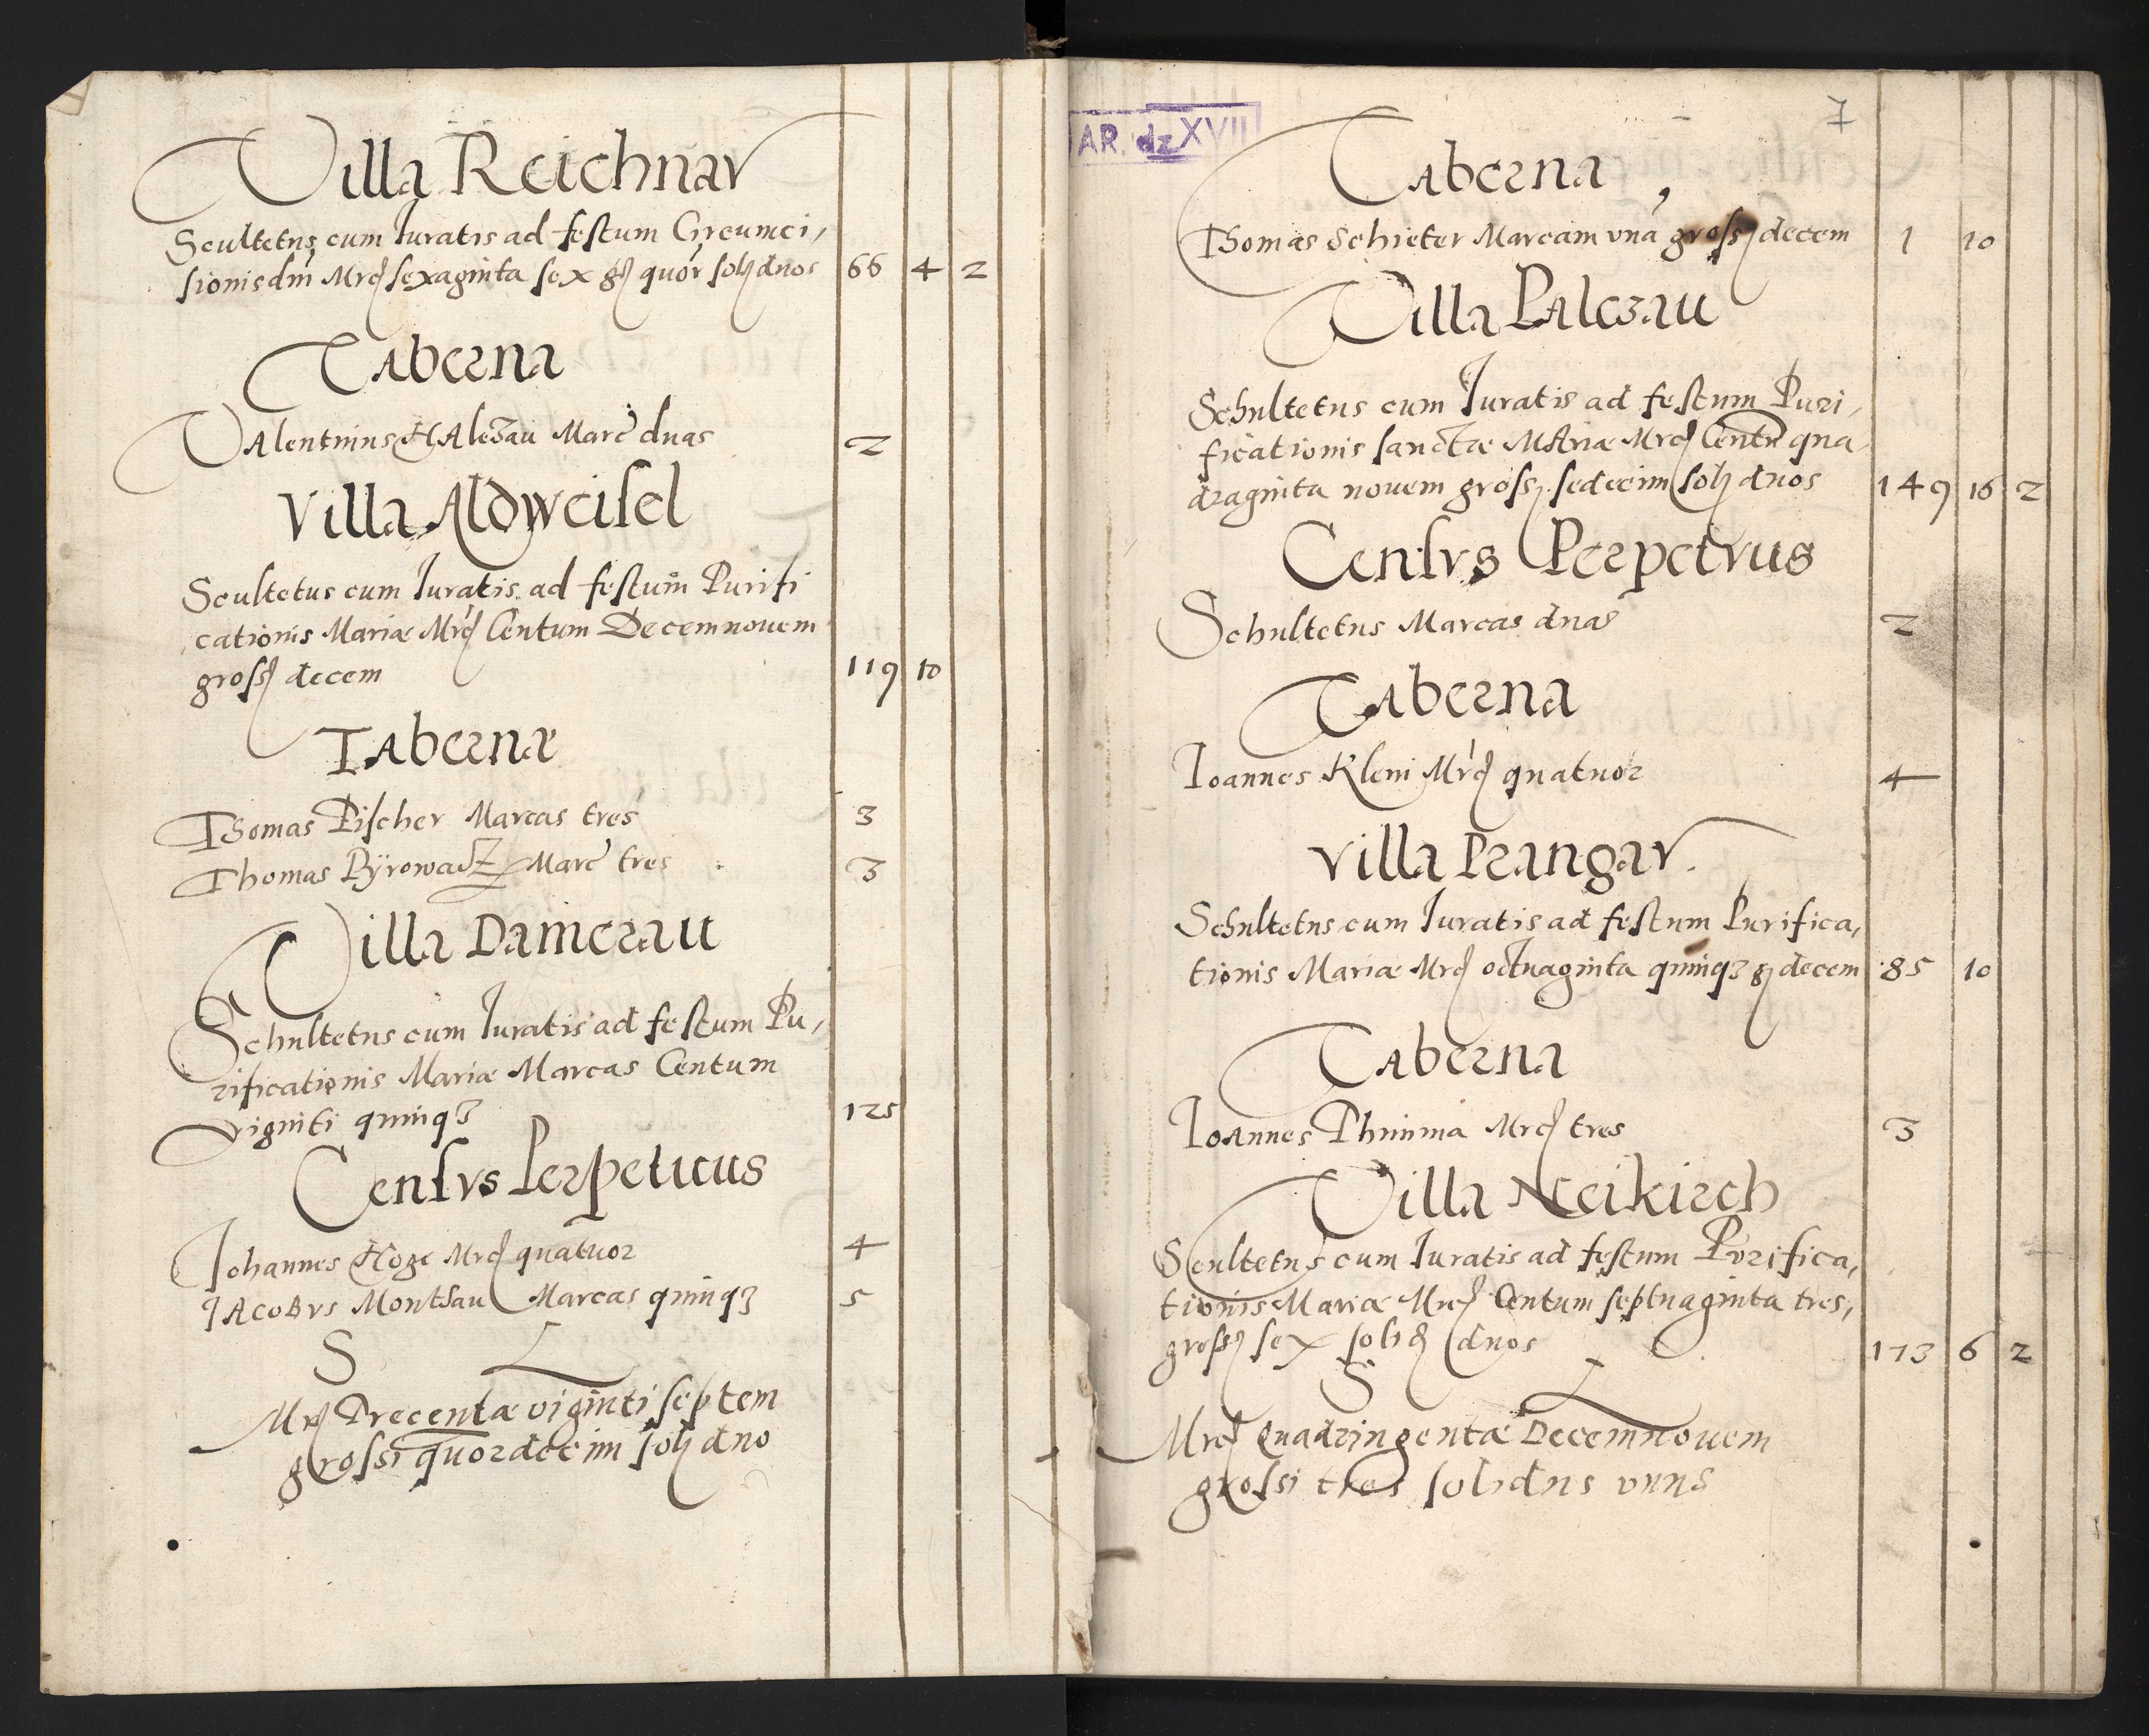 Villa Reichnav
Scultetus cum Iuratis ad festum Circumci,
sionis dni Mrc sexaginta sex gr quor sol duos 66 4 2
Taberna
Valentinus Halczau Marc duas 2
Villa Aldweisel
Scultetus cum Iuratis ad festum Purifi
cationis Mariæ Mrc Centum Decemnouem
gross decem 119 10
Taberna
Thomas Pischer Marcas tres 3
Thomas Marc tres 3
Villa Damerau
Schultetus cum Iuratis ad festum Pu,
rificationis Mariæ Marcas Centum
viginti quinqз 125
Censvs Perpetuus
Johannes Hoge Mrc quatuor 4
Jacobvs Montsau Marcas quinqз 5
S L
Mrc Trecentæ viginti septem
grossi quordecim sol duo
AR. dz XVII
7
Taberna
Thomas Schieter Marcam vna gross decem 1 10
Villa Palczau
Schultetus cum Iuratis ad festum Puri,
ficationis sanctæ Mariæ Mrc Centu qua
draginta novem gross. sedecim sol duos 149 16 2
Censvs Perpetvus
Schultetus Marcas duas 2
Taberna
Ioannes Klein Mrc quatuor 4
Villa Prangav.
Schultetus cum Iuratis ad festum Purifica,
tionis Mariæ Mrc octuaginta quinqз g decem 85 10
Taberna
Ioannes Mrc tres 3
Villa Neikirch
Scultetus cum Iuratis ad festum Pvrifica,
tionis Mariæ Mrc Centum septuaginta tres,
gross sex solid duos 173 6 2
S L
Mrc Quadringentæ Decemnouem
grossi tres solidus vnus